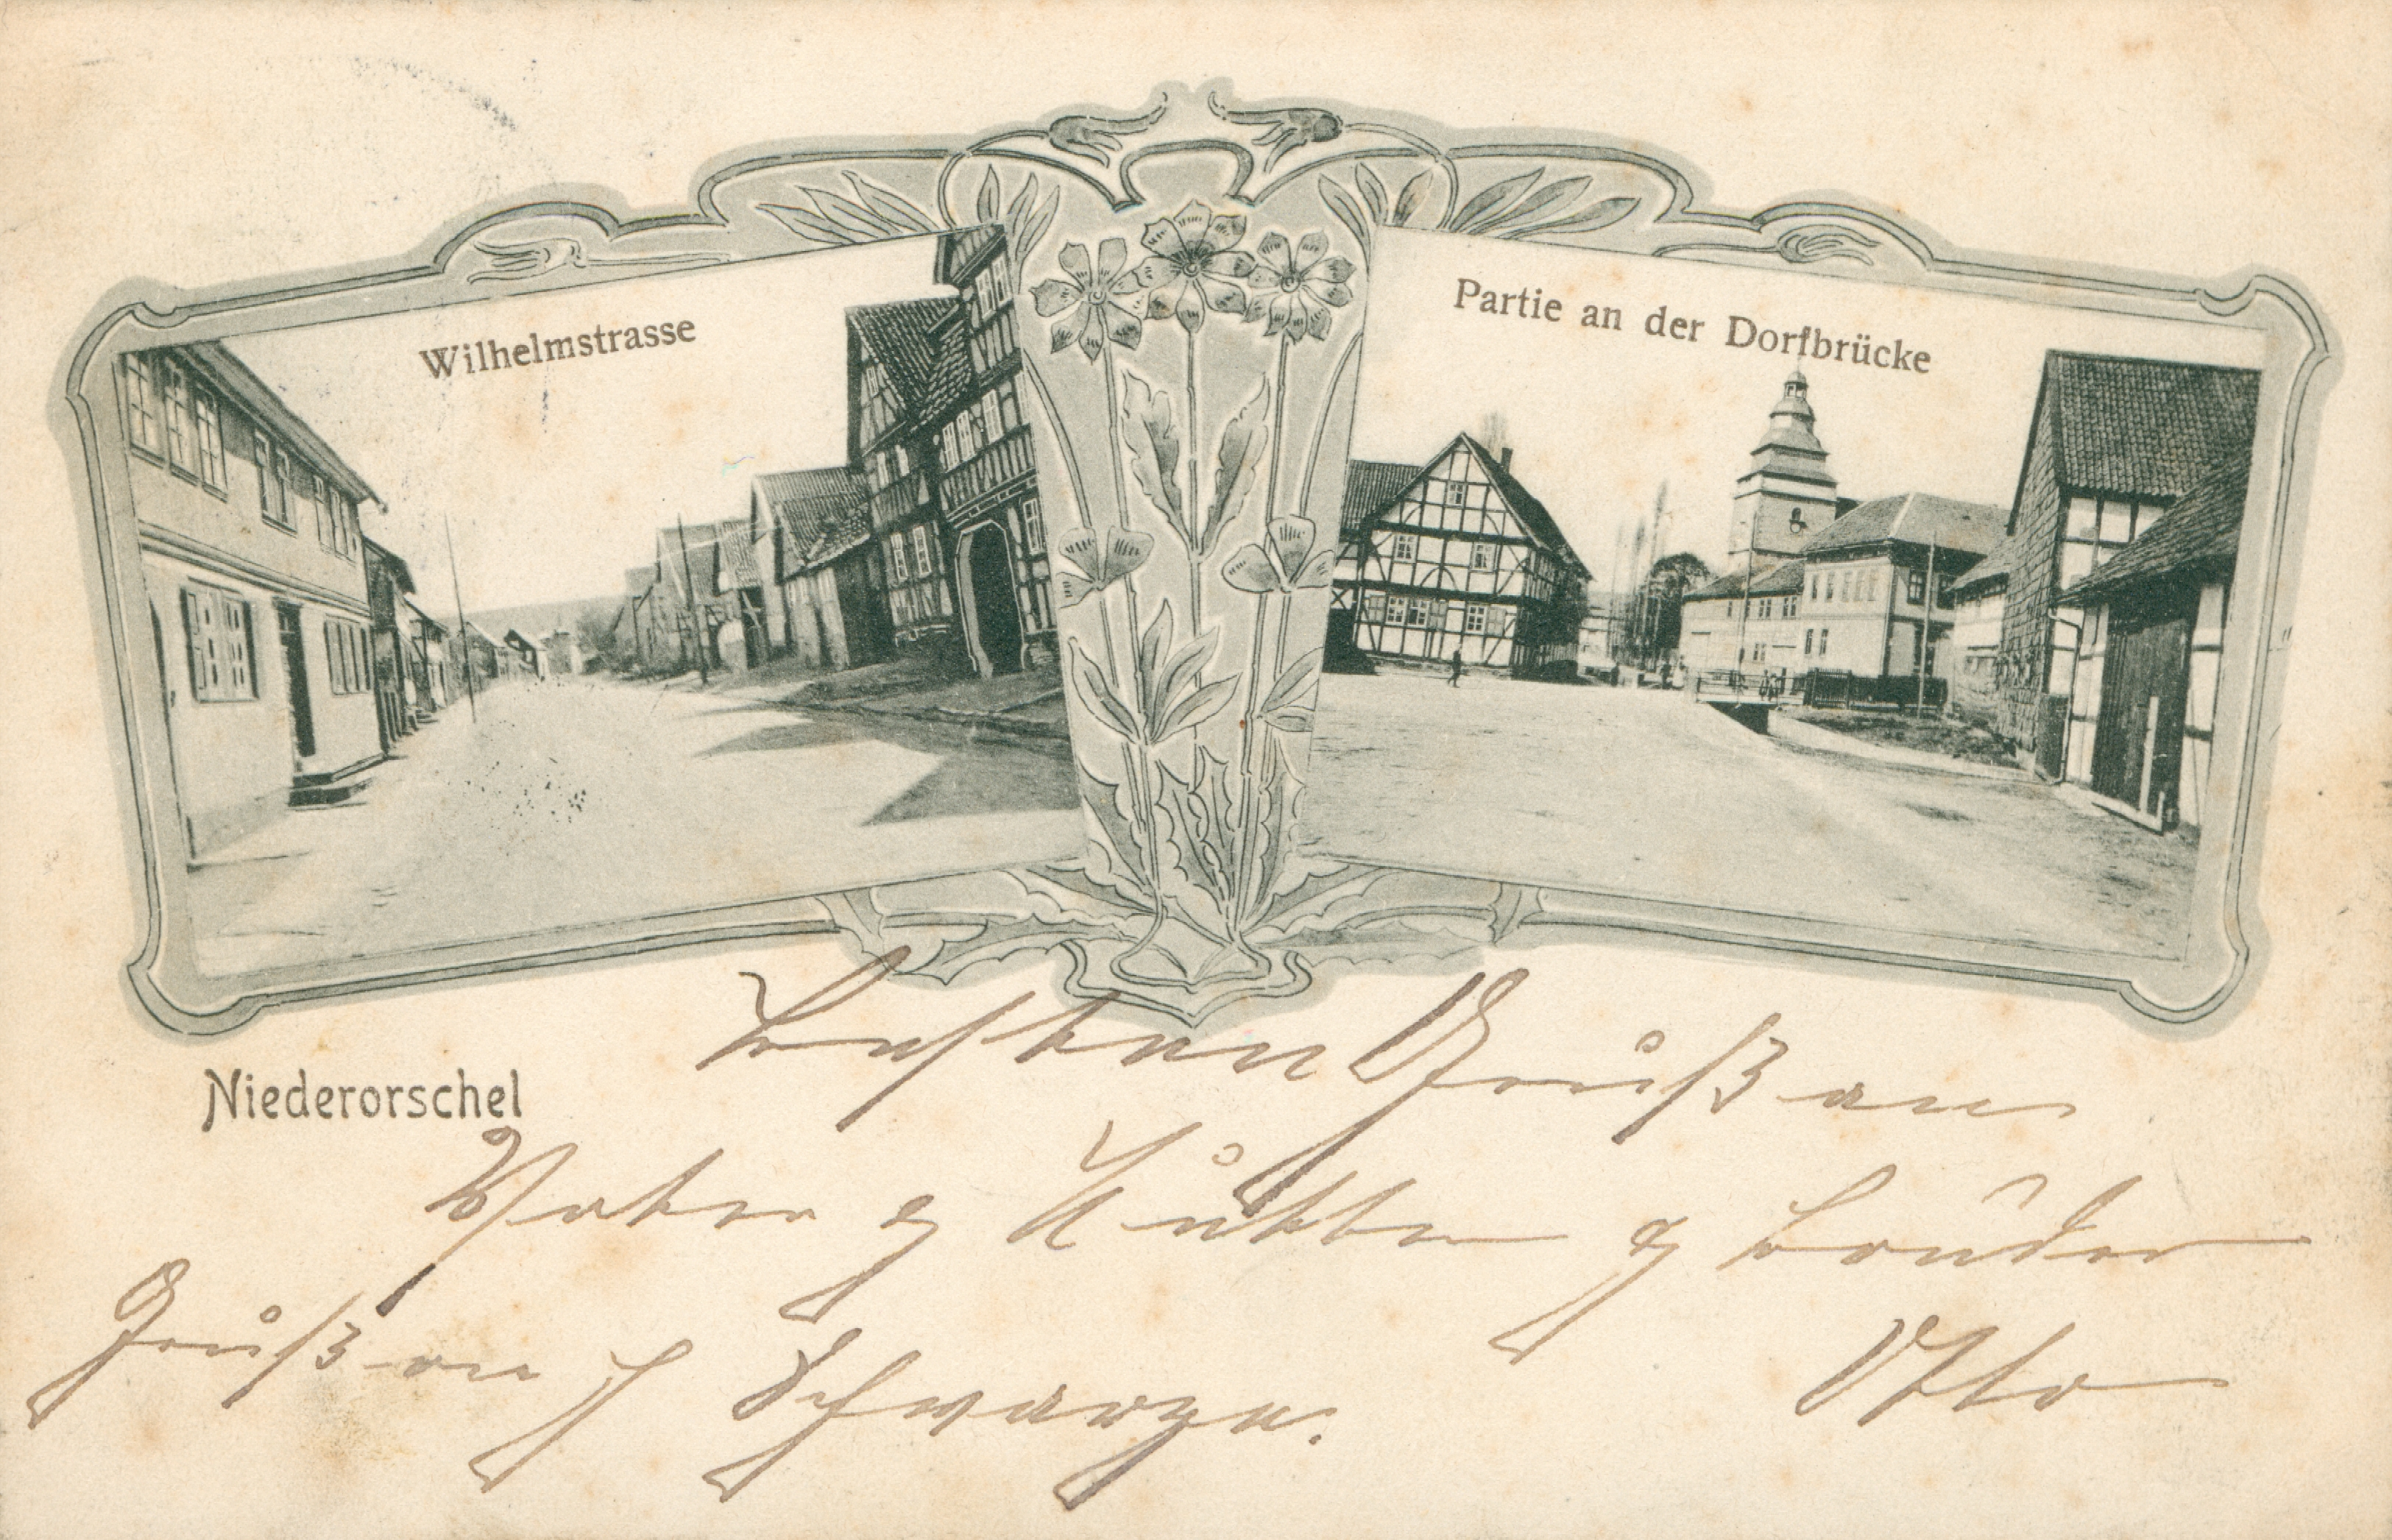 Wilhelmstrasse
Partie an der Dorfbrücke
Niederorschel
Besten Gruß an
Vater & Mutter & Bruder
Gruß an Schwarze.
Otto